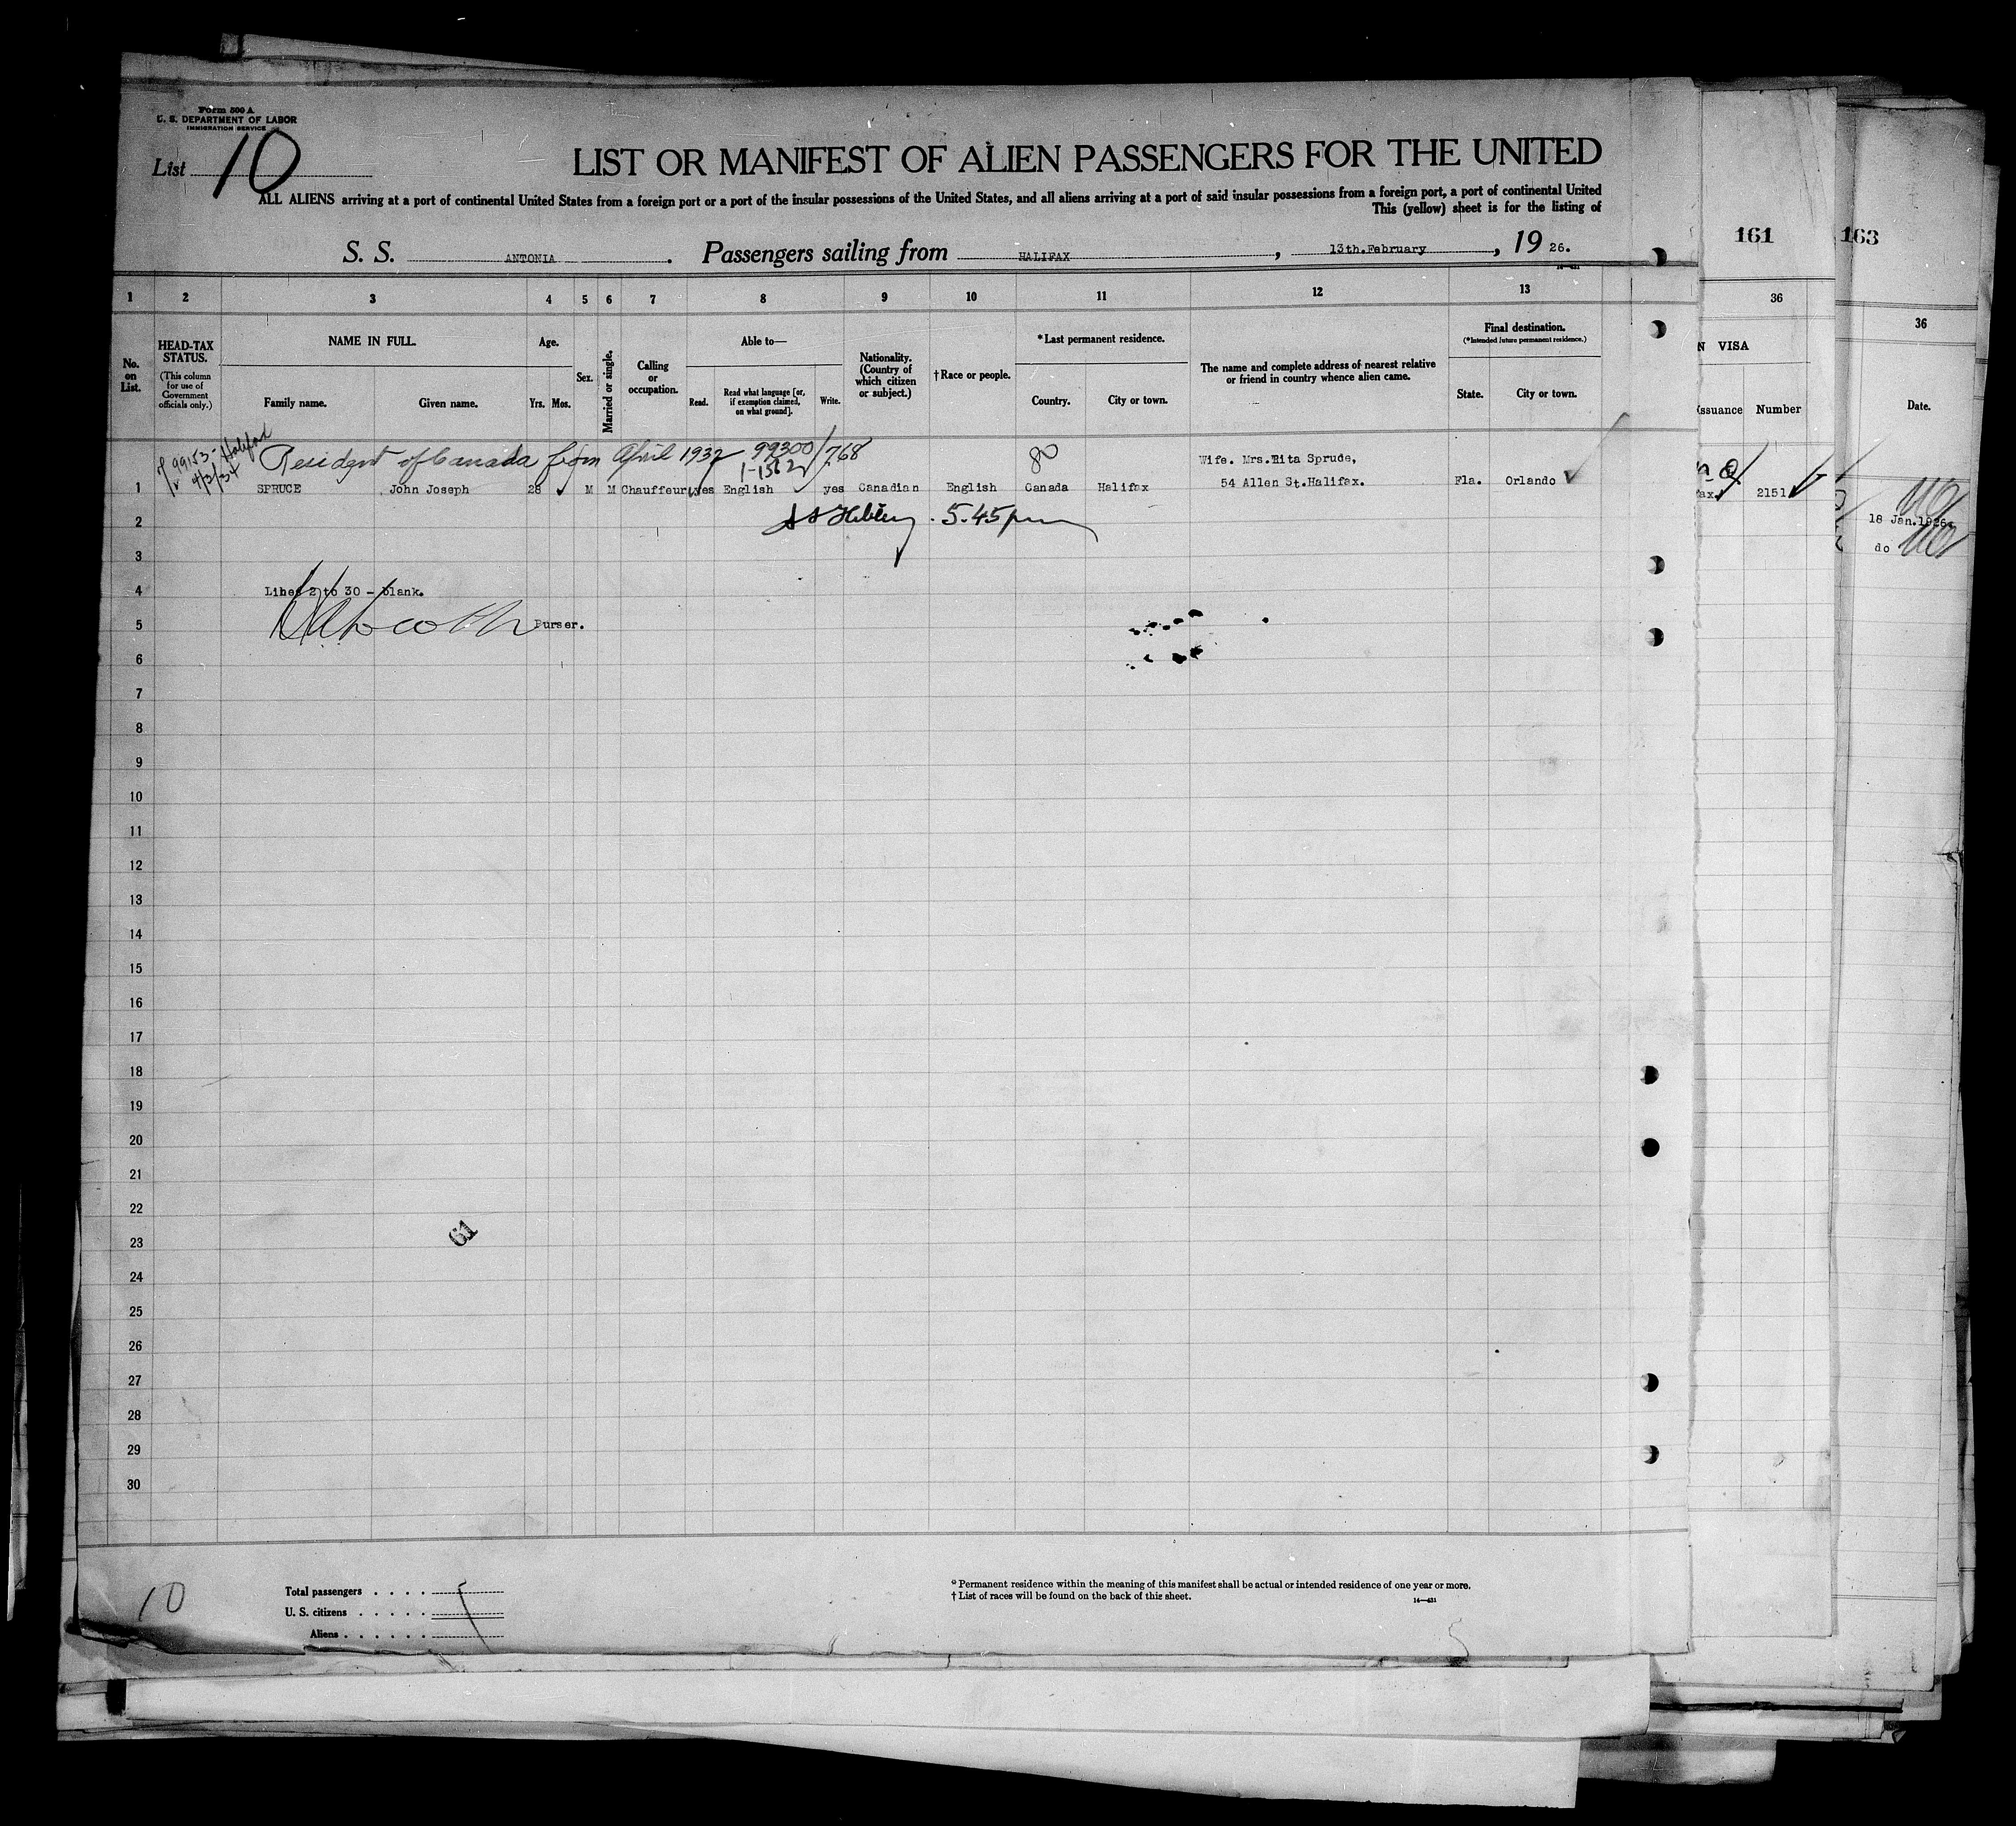 Form 500 A
U. S. DEPARTMENT OF LABOR
IMMIGRATION SERVICE
List 10
LIST OR MANIFEST OF ALIEN PASSENGERS FOR THE UNITED
ALL ALIENS arriving at a port of continental United States from a foreign port or a port of the insular possessions of the United States, and all aliens arriving at a port of said insular possessions from a foreign port, a port of continental United
This (yellow) sheet is for the listing of
S. S. ANTONIA. Passengers sailing from HALIFAX, 13th.February, 19 26.
16—431
161
163
1 2 3 4 5 6 7 8 9 10 11 12 13
36
36
No. on List.
HEAD-TAX STATUS.
(This column for use of Government officials only.)
NAME IN FULL.
Family name. Given name.
Age.
Yrs. Mos.
Sex.
Married or single.
Calling or occupation.
Able to—
Read. Read what language [or, if exemption claimed, on what ground]. Write.
Nationality. (Country of which citizen or subject.)
† Race or people.
* Last permanent residence.
Country. City or town.
The name and complete address of nearest relative or friend in country whence alien came.
Final destination.
(*Intended future permanent residence.)
State. City or town.
N VISA
Issuance Number
Date.
99153- Halifax
4/3/34
Resident of Canada from April 1932 99300/768
1-1562
80
Wife. Mrs.Rita Sprude,
1 SPRUCE John Joseph 28 M M Chauffeur yes English yes Canadian English Canada Halifax 54 Allen St.Halifax. Fla. Orlando
ax. 2151
2 5.45pm
18 Jan.1926.
3
do
4 Lines 2 to 30 - blank.
5 Purser.
6
7
8
9
10
11
12
13
14
15
16
17
18
19
20
21
22
61
23
24
25
26
27
28
29
30
10
Total passengers . . . .
U. S. citizens . . . . .
Aliens . . . . . .
* Permanent residence within the meaning of this manifest shall be actual or intended residence of one year or more.
† List of races will be found on the back of this sheet.
16—431